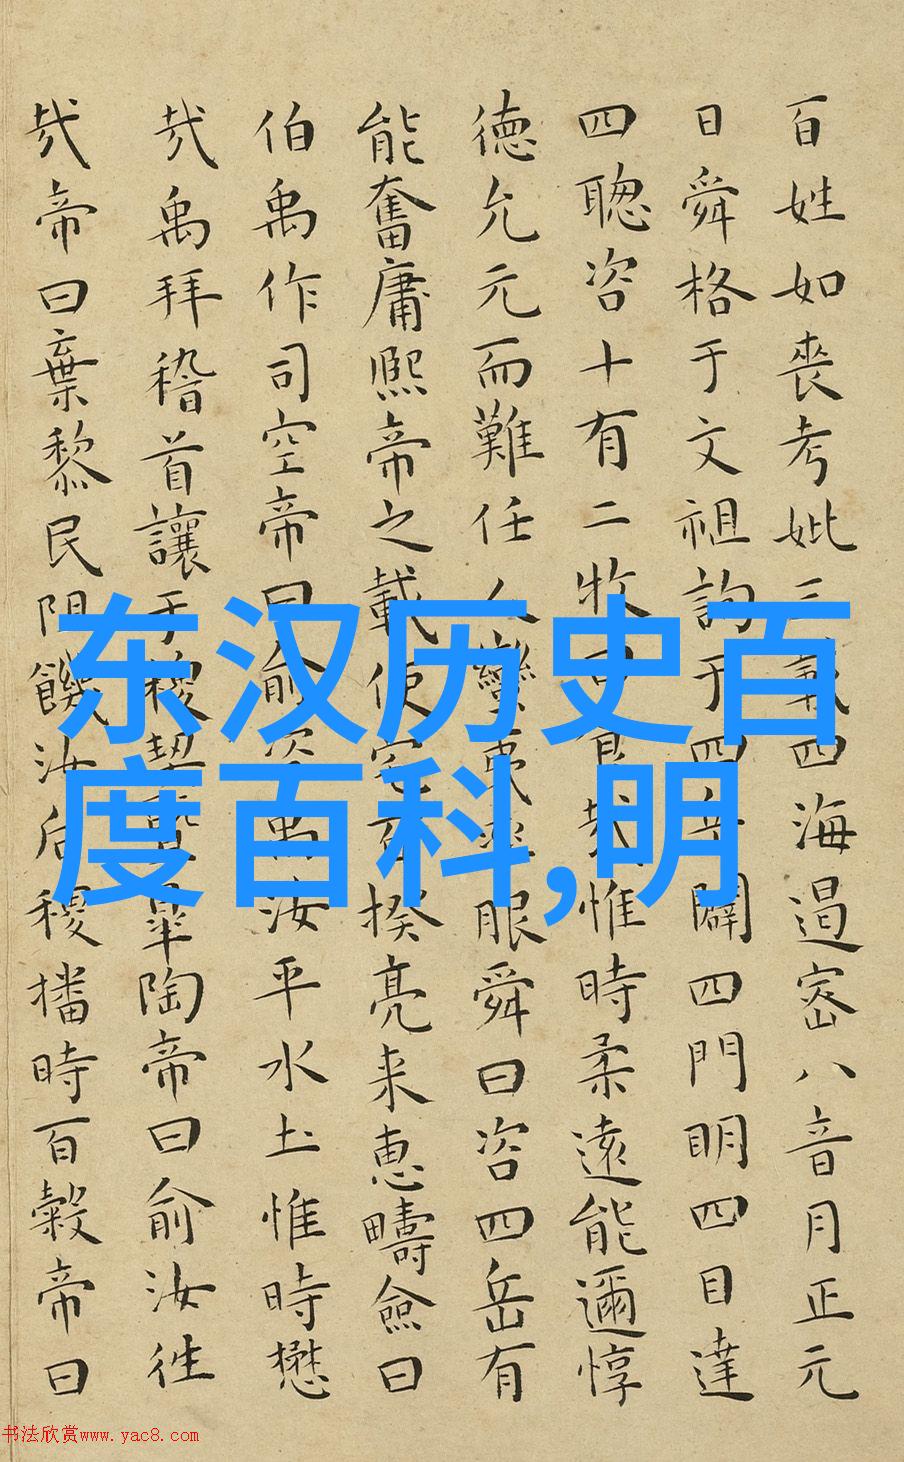 百姓如喪考妣三載四海遏密八音月正元
日舜格于文祖詢于四岳闢四門明四目達
四聰咨十有二牧曰食哉惟時柔遠能邇惇
德允元而難任人蠻夷率服舜曰咨四岳有
能奮庸熙帝之載使宅百揆亮采惠疇僉曰
伯禹作司空帝曰俞咨禹汝平水土惟時懋
哉禹拜稽首讓于稷契暨皐陶帝曰俞汝往
哉帝曰棄黎民阻饑汝后稷播時百穀帝曰
东汉历史百
度百科,明
书法欣赏www.yac8.com